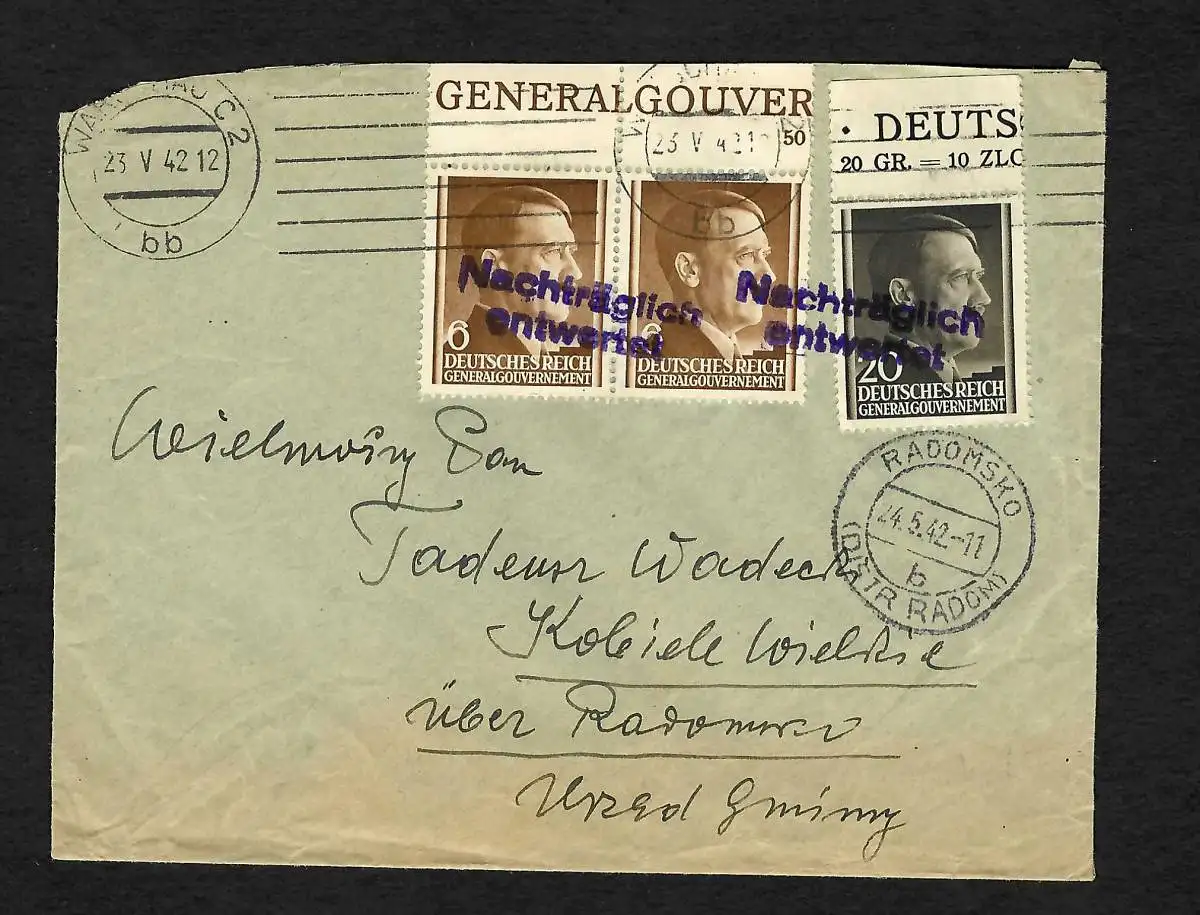 WARSCHAU C2
23 V 42 12
bb
GENERALGOUVER
23 V 42 12
50
bb
· DEUTS
20 GR. = 10 ZLO
6
DEUTSCHES REICH
GENERALGOUVERNEMENT
6
DEUTSCHES REICH
GENERALGOUVERNEMENT
20
DEUTSCHES REICH
GENERALGOUVERNEMENT
Nachträglich
entwertet
Nachträglich
entwertet
RADOMSKO
24.5.42.-11
b
(DISTR RADOM)
Wielmożny Pan
Tadeusz Wadecki
Kobiele Wielkie
über Radomsko
Urząd Gminny